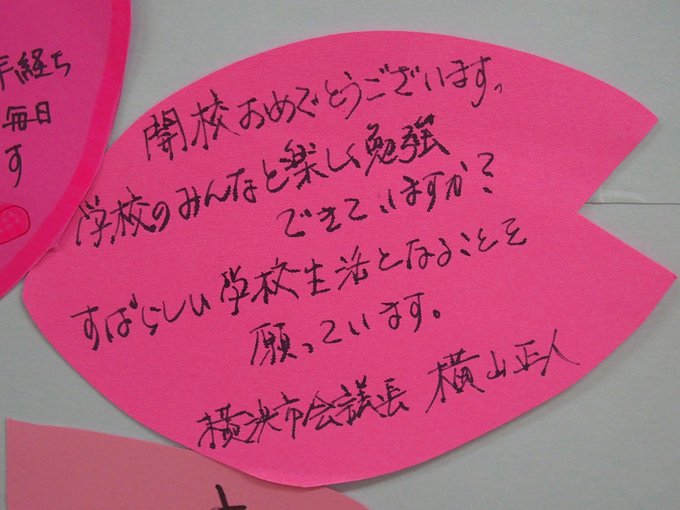 開校おめでとうございます。
学校のみんなと楽しく勉強
できていますか?
すばらしい学校生活となることを
願っています。
横浜市会議長 横山正人
年経ち
毎日
す